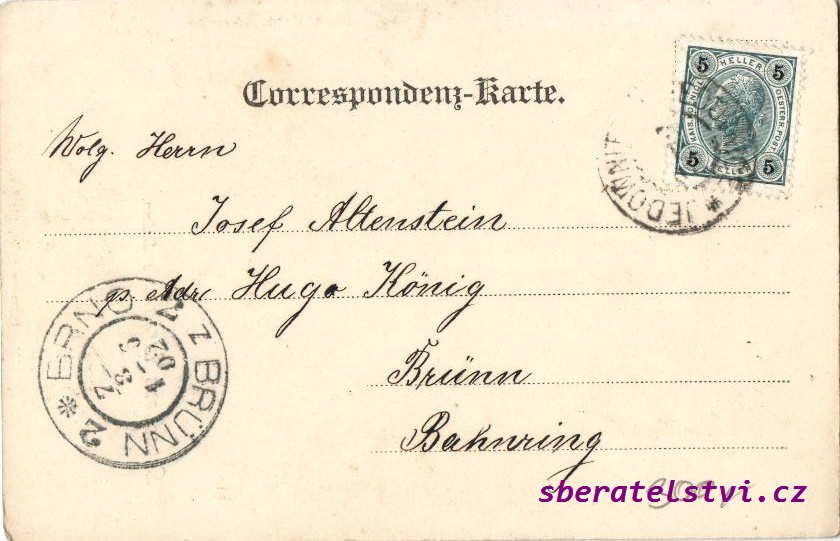 Correspondenz-Karte.
Wolg. Herrn
Josef Altenstein
Adr. Hugo König
Brünn
Bahnring
5 HELLER 5
KAIS. KOENIGL. OESTERR. POST.
5 HELLER 5
* JEDOWNIT
BRNO 2 Z BRÜNN 2 *
sberatelstvi.cz